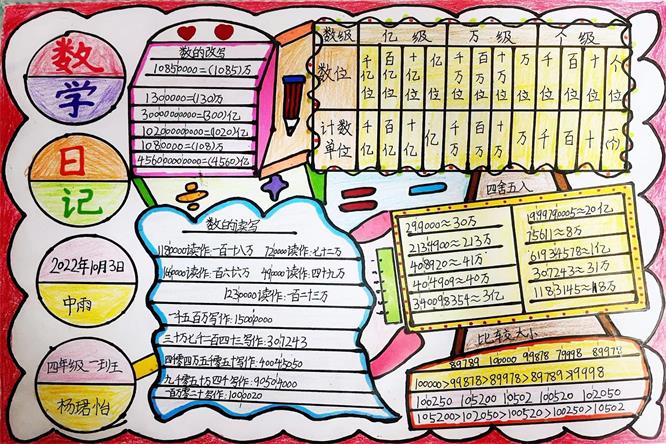 数
学
日
记
2022年10月3日
中雨
四年级 一班
杨珺怡
数的改写
10850000=(1085)万
1300000=(130)万
30000000000=(300)亿
102000000000=(1020)亿
1080000=(108)万
456000000000=(4560)亿
数级 亿级 万级 个级
数位 千亿位 百亿位 十亿位 亿位 千万位 百万位 十万位 万位 千位 百位 十位 个位
计数单位 千亿 百亿 十亿 亿 千万 百万 十万 万 千 百 十 一(个)
数的读写
1180000读作:一百一十八万 720000读作:七十二万
490000读作:四十九万
1230000读作:一百二十三万
一千五百万写作:15000000
三十万七千二百四十三写作:307243
四千零四万五千零五十写作:40045050
九千零五十万四千写作:90504000
一百万零二十写作:1000020
四舍五入
299000≈30万
2134900≈213万
408920≈41万
404909≈40万
340098354≈3亿
1999979005≈20亿
75611≈8万
61934578≈1亿
307243≈31万
比较大小
89789 100000 99878 79998 89978
100000>99878>89978>89789>79998
100250 105200 10502 100520 102050
105200>102050>100520>100250>10502